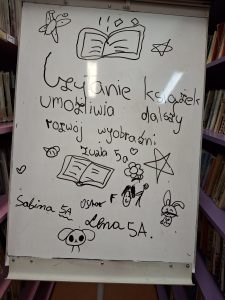 Czytanie książek
umożliwia dalszy
rozwój wyobraźni
Zuzia 5a
Sabina 5A Oskar F
Lena 5A.